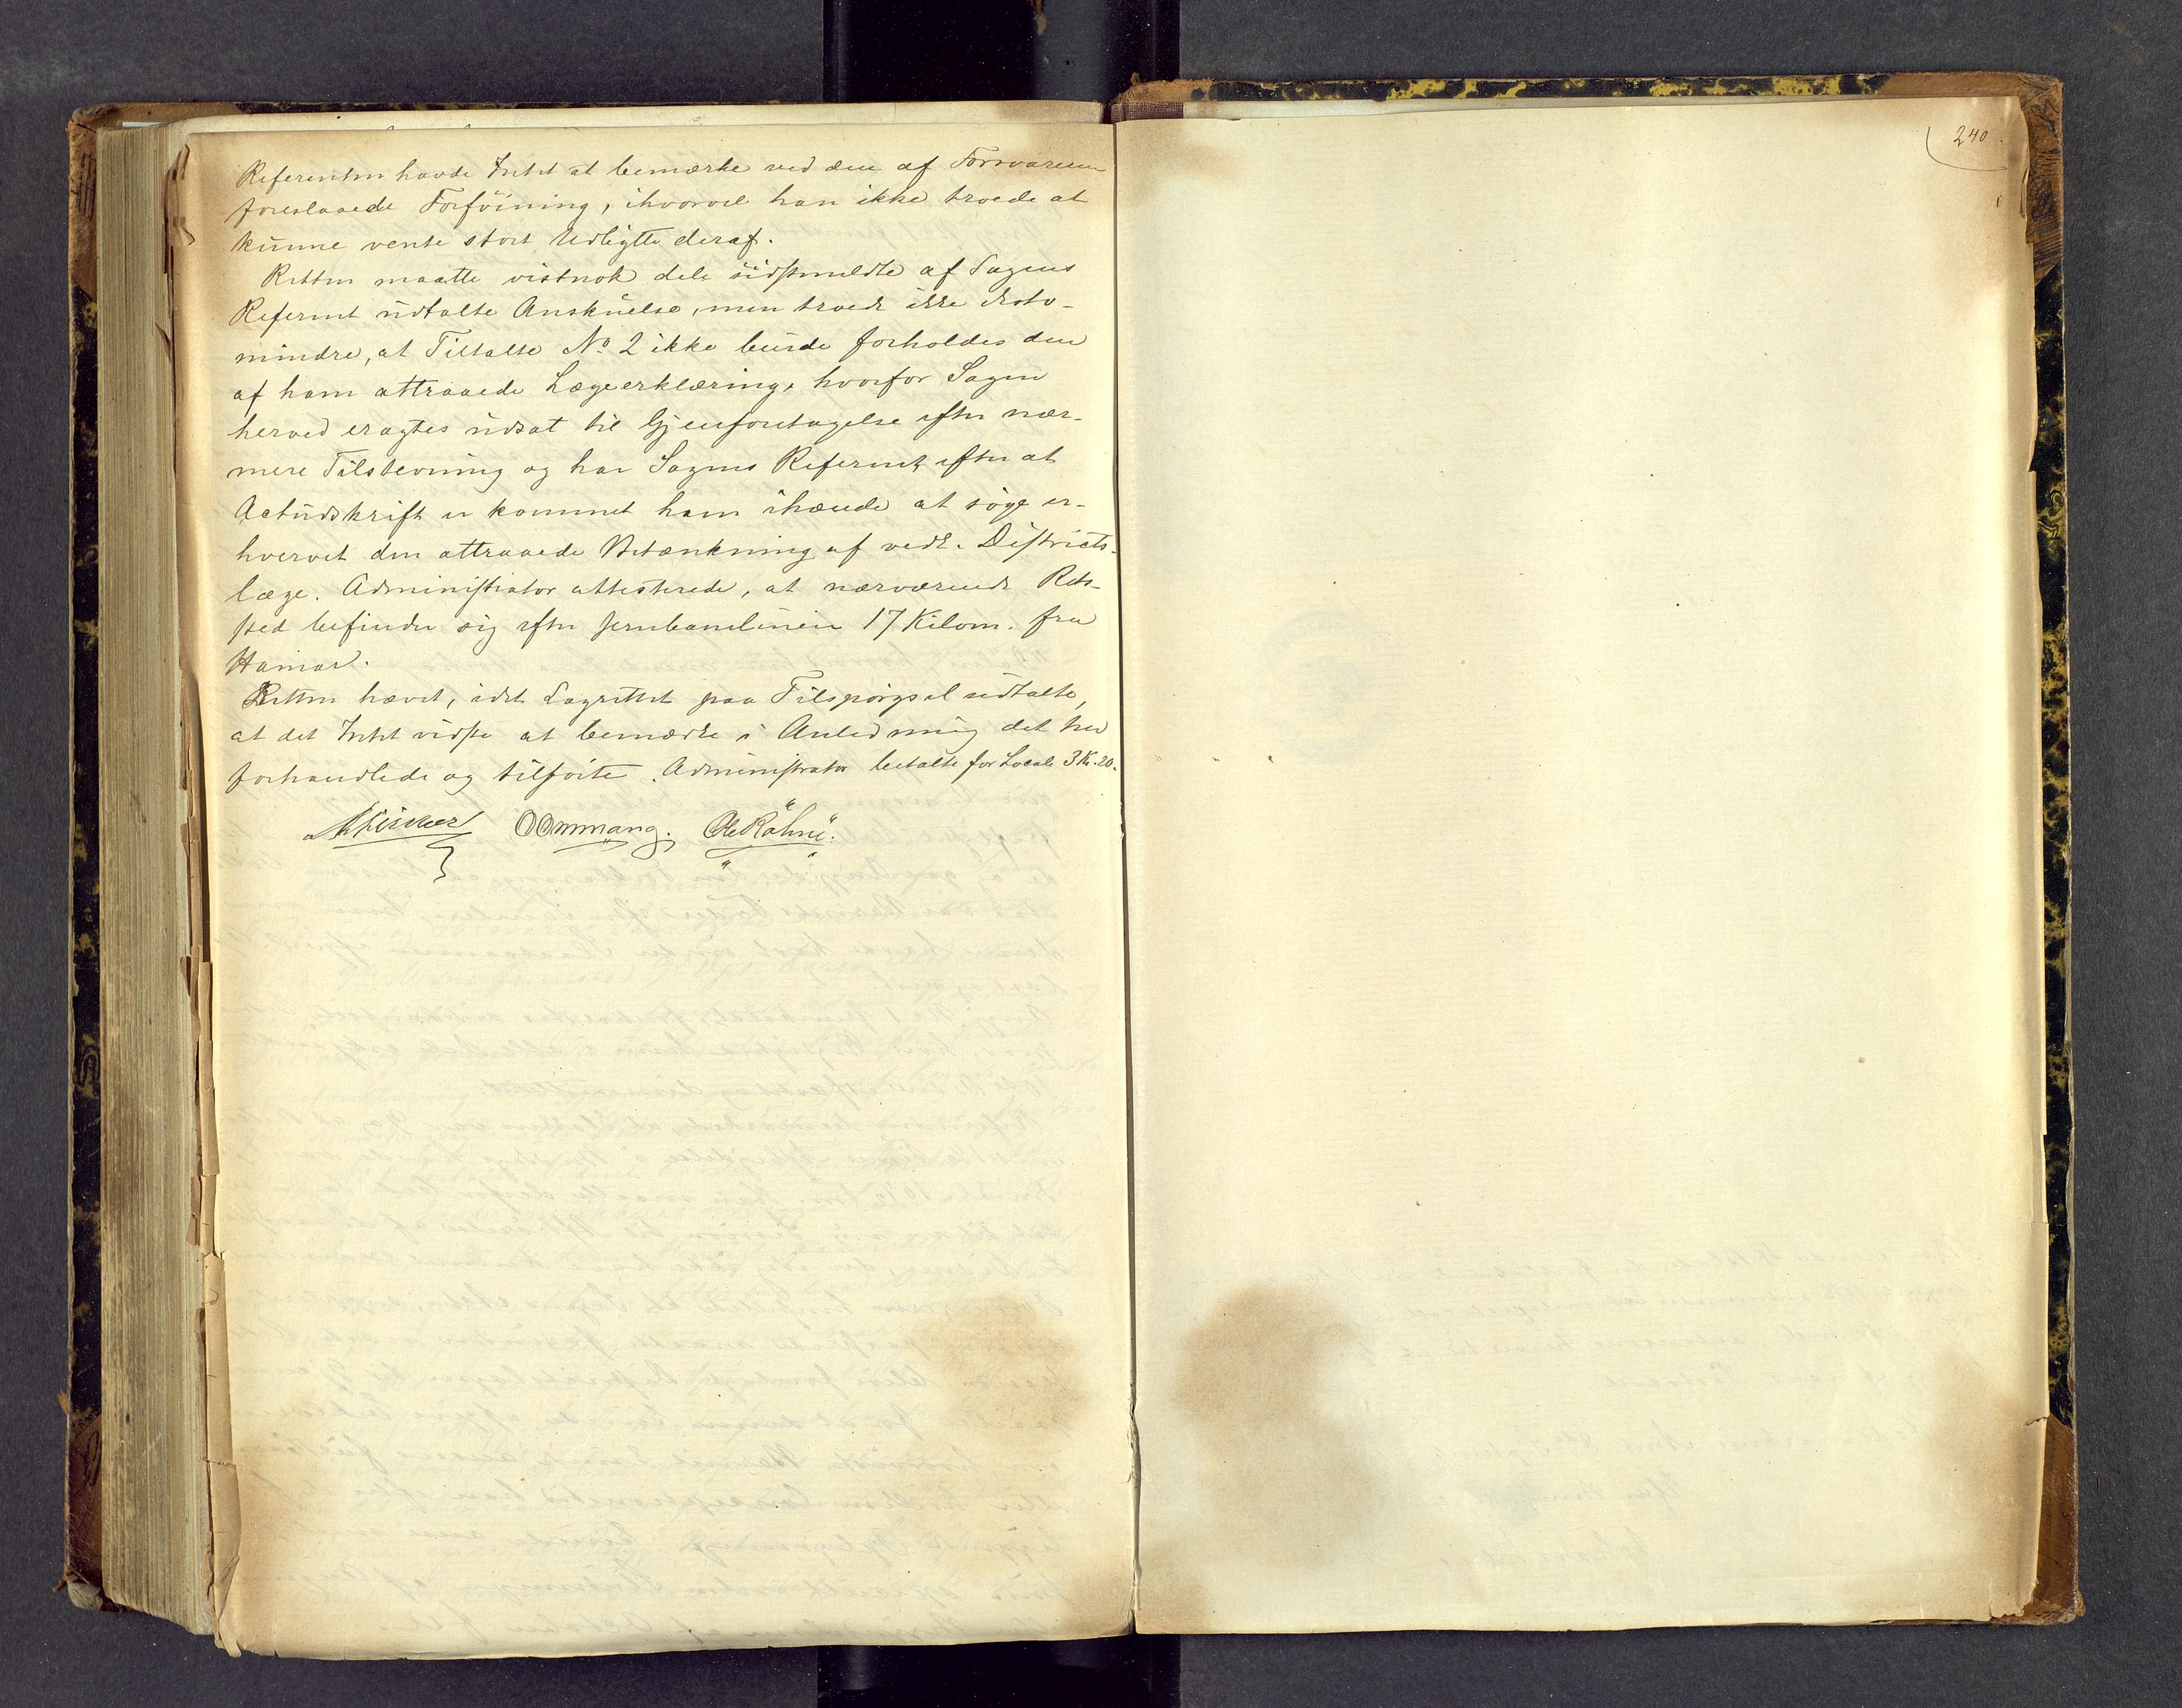 Referenten havde Intet at bemærke ved den af Forsvareren
foreslaaede Forföining, ihvorvel han ikke troede at
kunne vente stort Udbytte deraf.
Retten maatte vistnok dele sidstmeldte af Sagens
Referent udtalte Anskuelse, men troede ikke desto-
mindre, at Tiltalte No 2 ikke burde forholdes den
af ham attraaede Lægeerklæring, hvorfor Sagen
herved eragtes udsat til Gjenforetagelse efter nær-
mere Tilstevning og har Sagens Referent efter at
Actudskrift er kommet ham ihænde at söge er-
hvervet den attraaede Betænkning af vedk. Districts-
læge. Administrator attesterede, at nærværende Rets-
sted befinder sig efter Jernbanelinien 17 Kilom. fra
Hamar.
Retten hævet, idet Lagrettet paa Tilspörgsel udtalte,
at det Intet vidste at bemærke i Anledning det her
forhandlede og tilförte. Administrator betalte for Locale 3 Kr. 20.
OOmmang. Ole Röhne.
240.